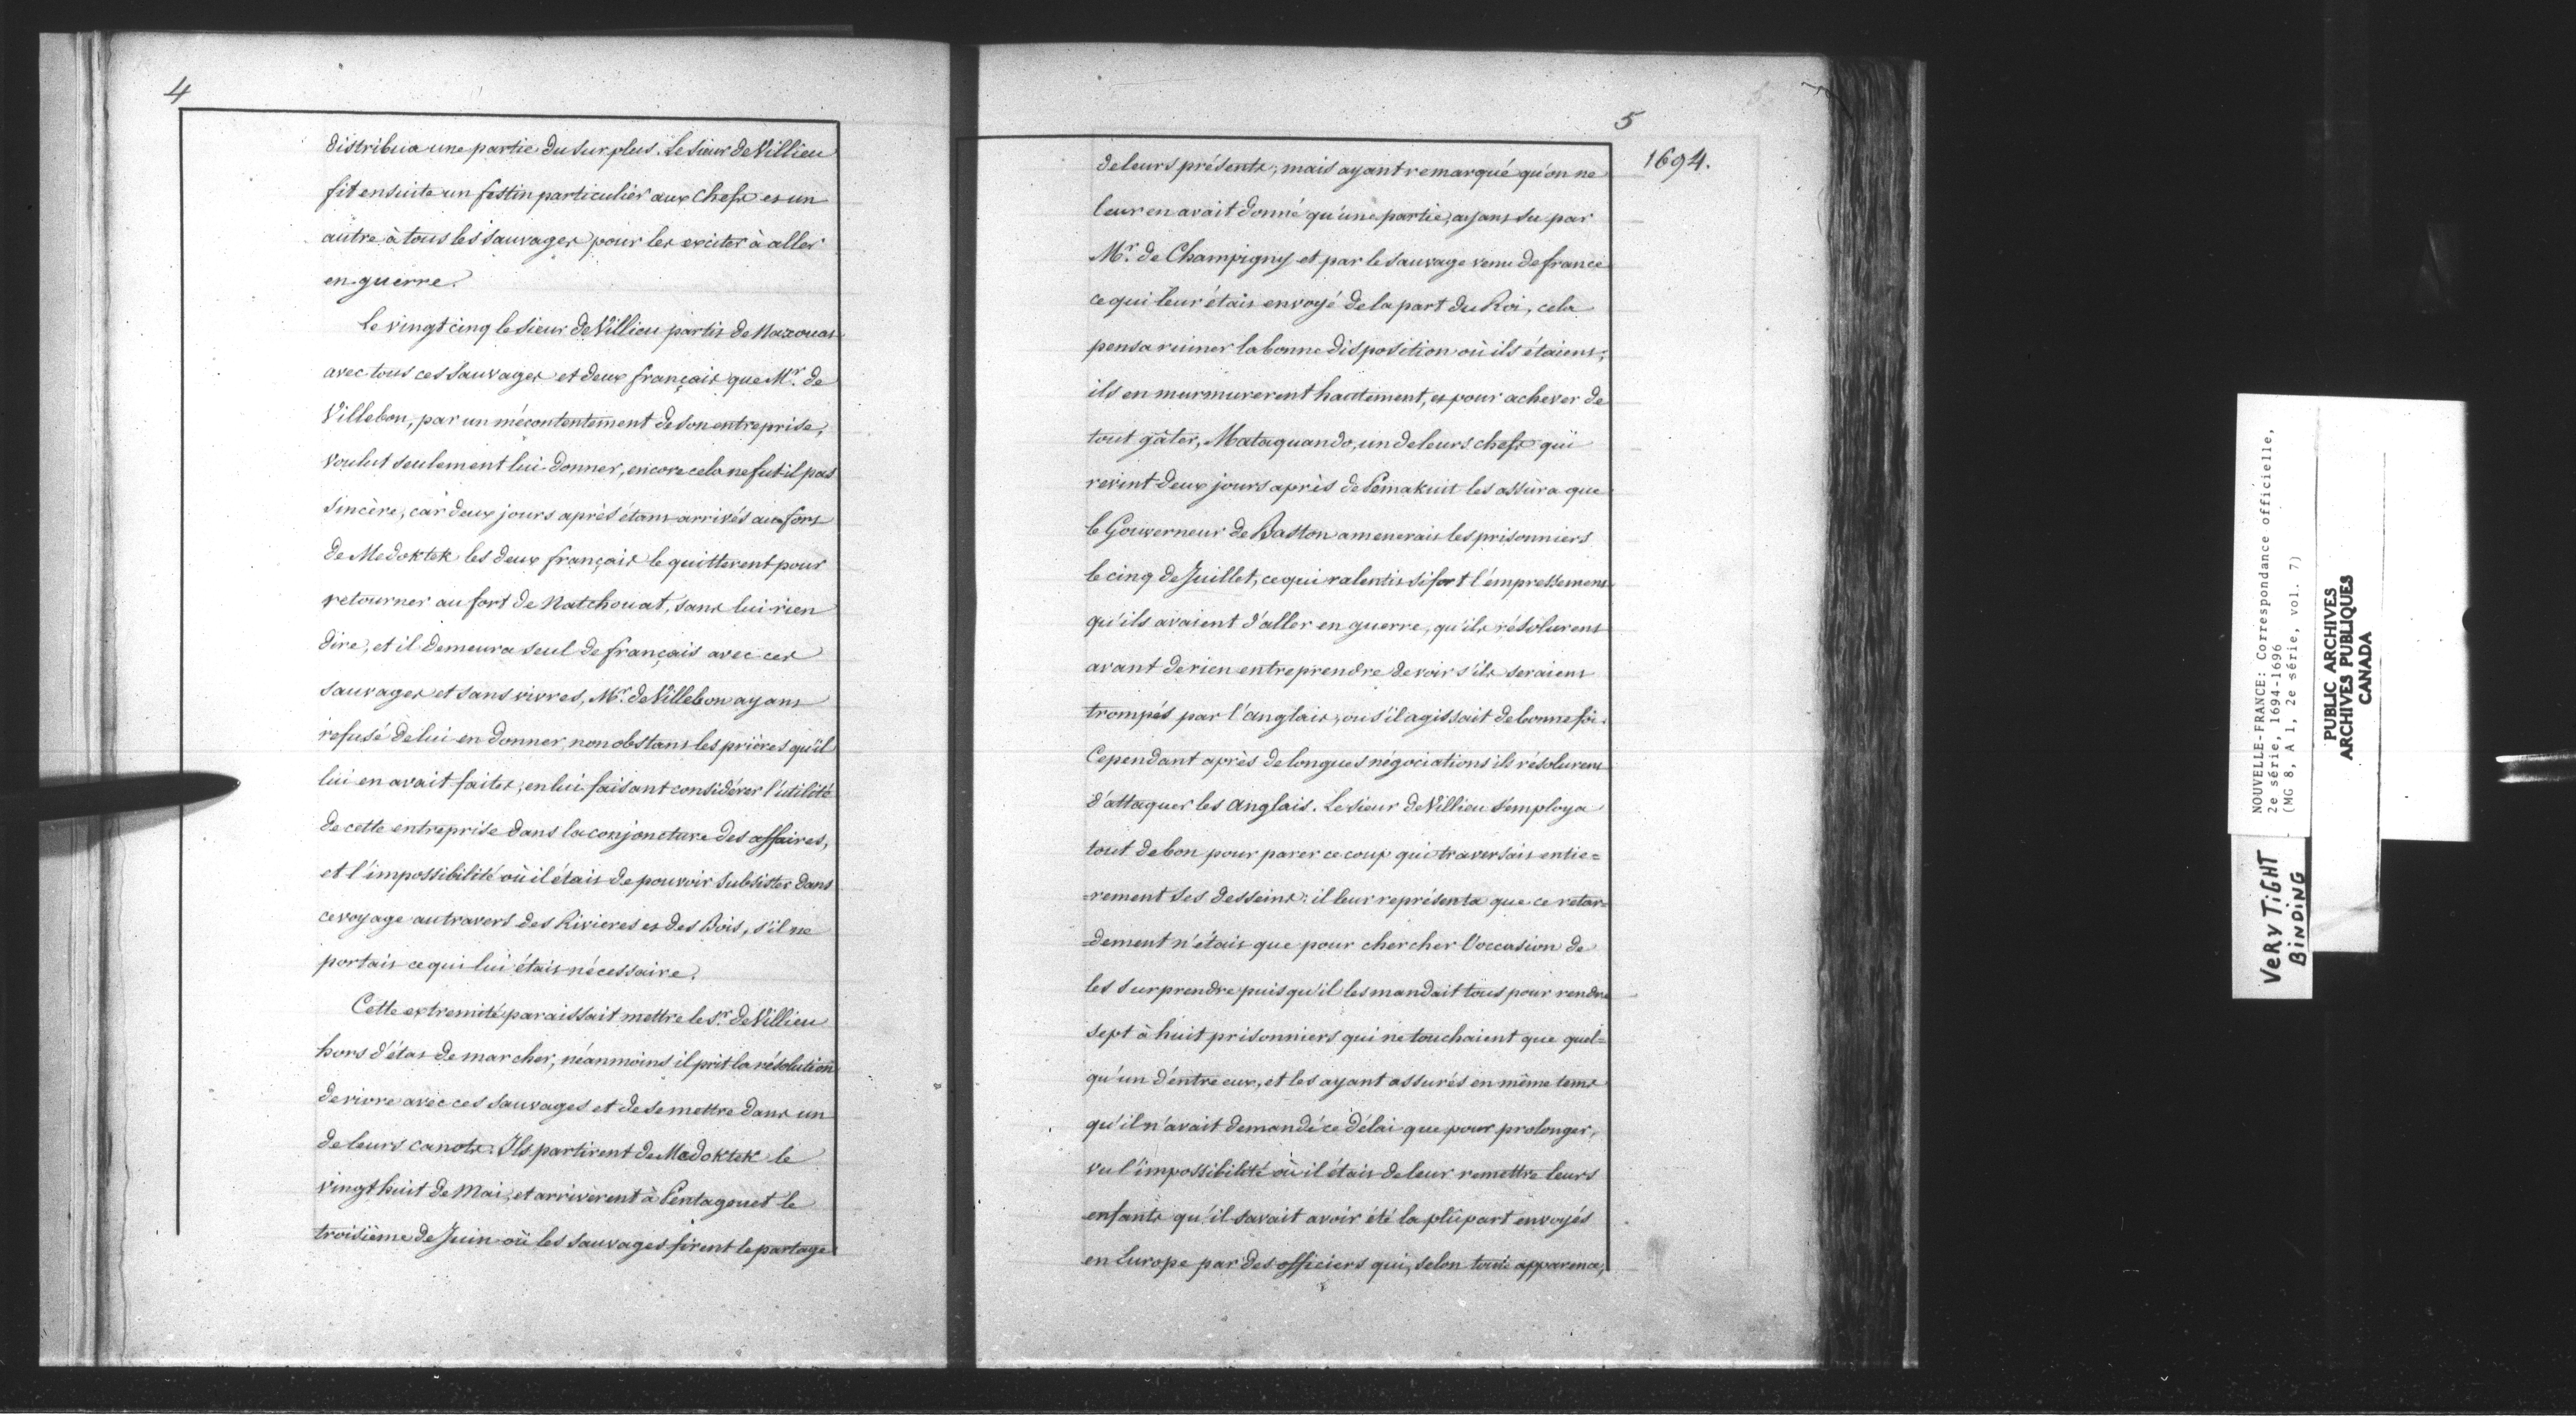 4
distribua une partie du surplus. Le sieur de Villieu
fit ensuite un festin particulier aux chefs et un
autre à tous les sauvages pour les exciter à aller
en guerre.
Le vingt cinq le sieur de Villieu partit de Naxouat
avec tous ces sauvages et deux français que Mr. de
Villebon, par un mécontentement de son entreprise,
voulut seulement lui donner, encore cela ne fut il pas
sincère, car deux jours après étant arrivés au fort
de Medoktek les deux français le quitterent pour
retourner au fort de Natchouat, sans lui rien
dire, et il demeura seul de français avec ces
sauvages et sans vivres, Mr. de Villebon ayant
refusé de lui en donner, nonobstant les prières qu'il
lui en avait faites, en lui faisant considérer l'utilité
de cette entreprise dans la conjoncture des affaires,
et l'impossibilité où il était de pouvoir subsister dans
ce voyage au travers des Rivieres et des Bois, s'il ne
portait ce qui lui était nécessaire.
Cette extremité paraissait mettre le Sr. de Villieu
hors d'état de marcher, néanmoins il prit la résolution
de vivre avec ces sauvages et de se mettre dans un
de leurs canots. Ils partirent de Medoktek le
vingt huit de Mai, et arrivèrent à Pentagouet le
troisième de Juin où les sauvages firent le partage
5
1694.
de leurs présents, mais ayant remarqué qu'on ne
leur en avait donné qu'une partie, ayant su par
Mr. de Champigny et par le sauvage venu de france
ce qui leur était envoyé de la part du Roi, cela
pensa ruiner la bonne disposition où ils étaient;
ils en murmurerent hautement, et pour achever de
tout gâter, Mataquando, un de leurs chefs qui
revint deux jours après de Pemakuit les assura que
le Gouverneur de Baston amenerait les prisonniers
le cinq de Juillet, ce qui ralentit si fort l'empressement
qu'ils avaient d'aller en guerre, qu'ils résolurent
avant de rien entreprendre de voir s'ils seraient
trompés par l'anglais, ou s'il agissait de bonne foi.
Cependant après de longues négociations ils résolurent
d'attaquer les anglais. Le sieur de Villieu s'employa
tout de bon pour parer ce coup qui traversait entie=
=rement ses desseins: il leur représenta que ce retar=
=dement n'était que pour chercher l'occasion de
les surprendre puisqu'il les mandait tous pour rendre
sept à huit prisonniers qui ne touchaient que quel=
qu'un d'entre eux, et les ayant assurés en même tems
qu'il n'avait demandé ce délai que pour prolonger,
vu l'impossibilité où il était de leur remettre leurs
enfants qu'il savait avoir été la plûpart envoyés
en Europe par des officiers qui, selon toute apparence,
NOUVELLE-FRANCE: Correspondance officielle,
2e série, 1694-1696
(MG 8, A 1, 2e série, vol. 7)
PUBLIC ARCHIVES
ARCHIVES PUBLIQUES
CANADA
VERY TIGHT
BINDING